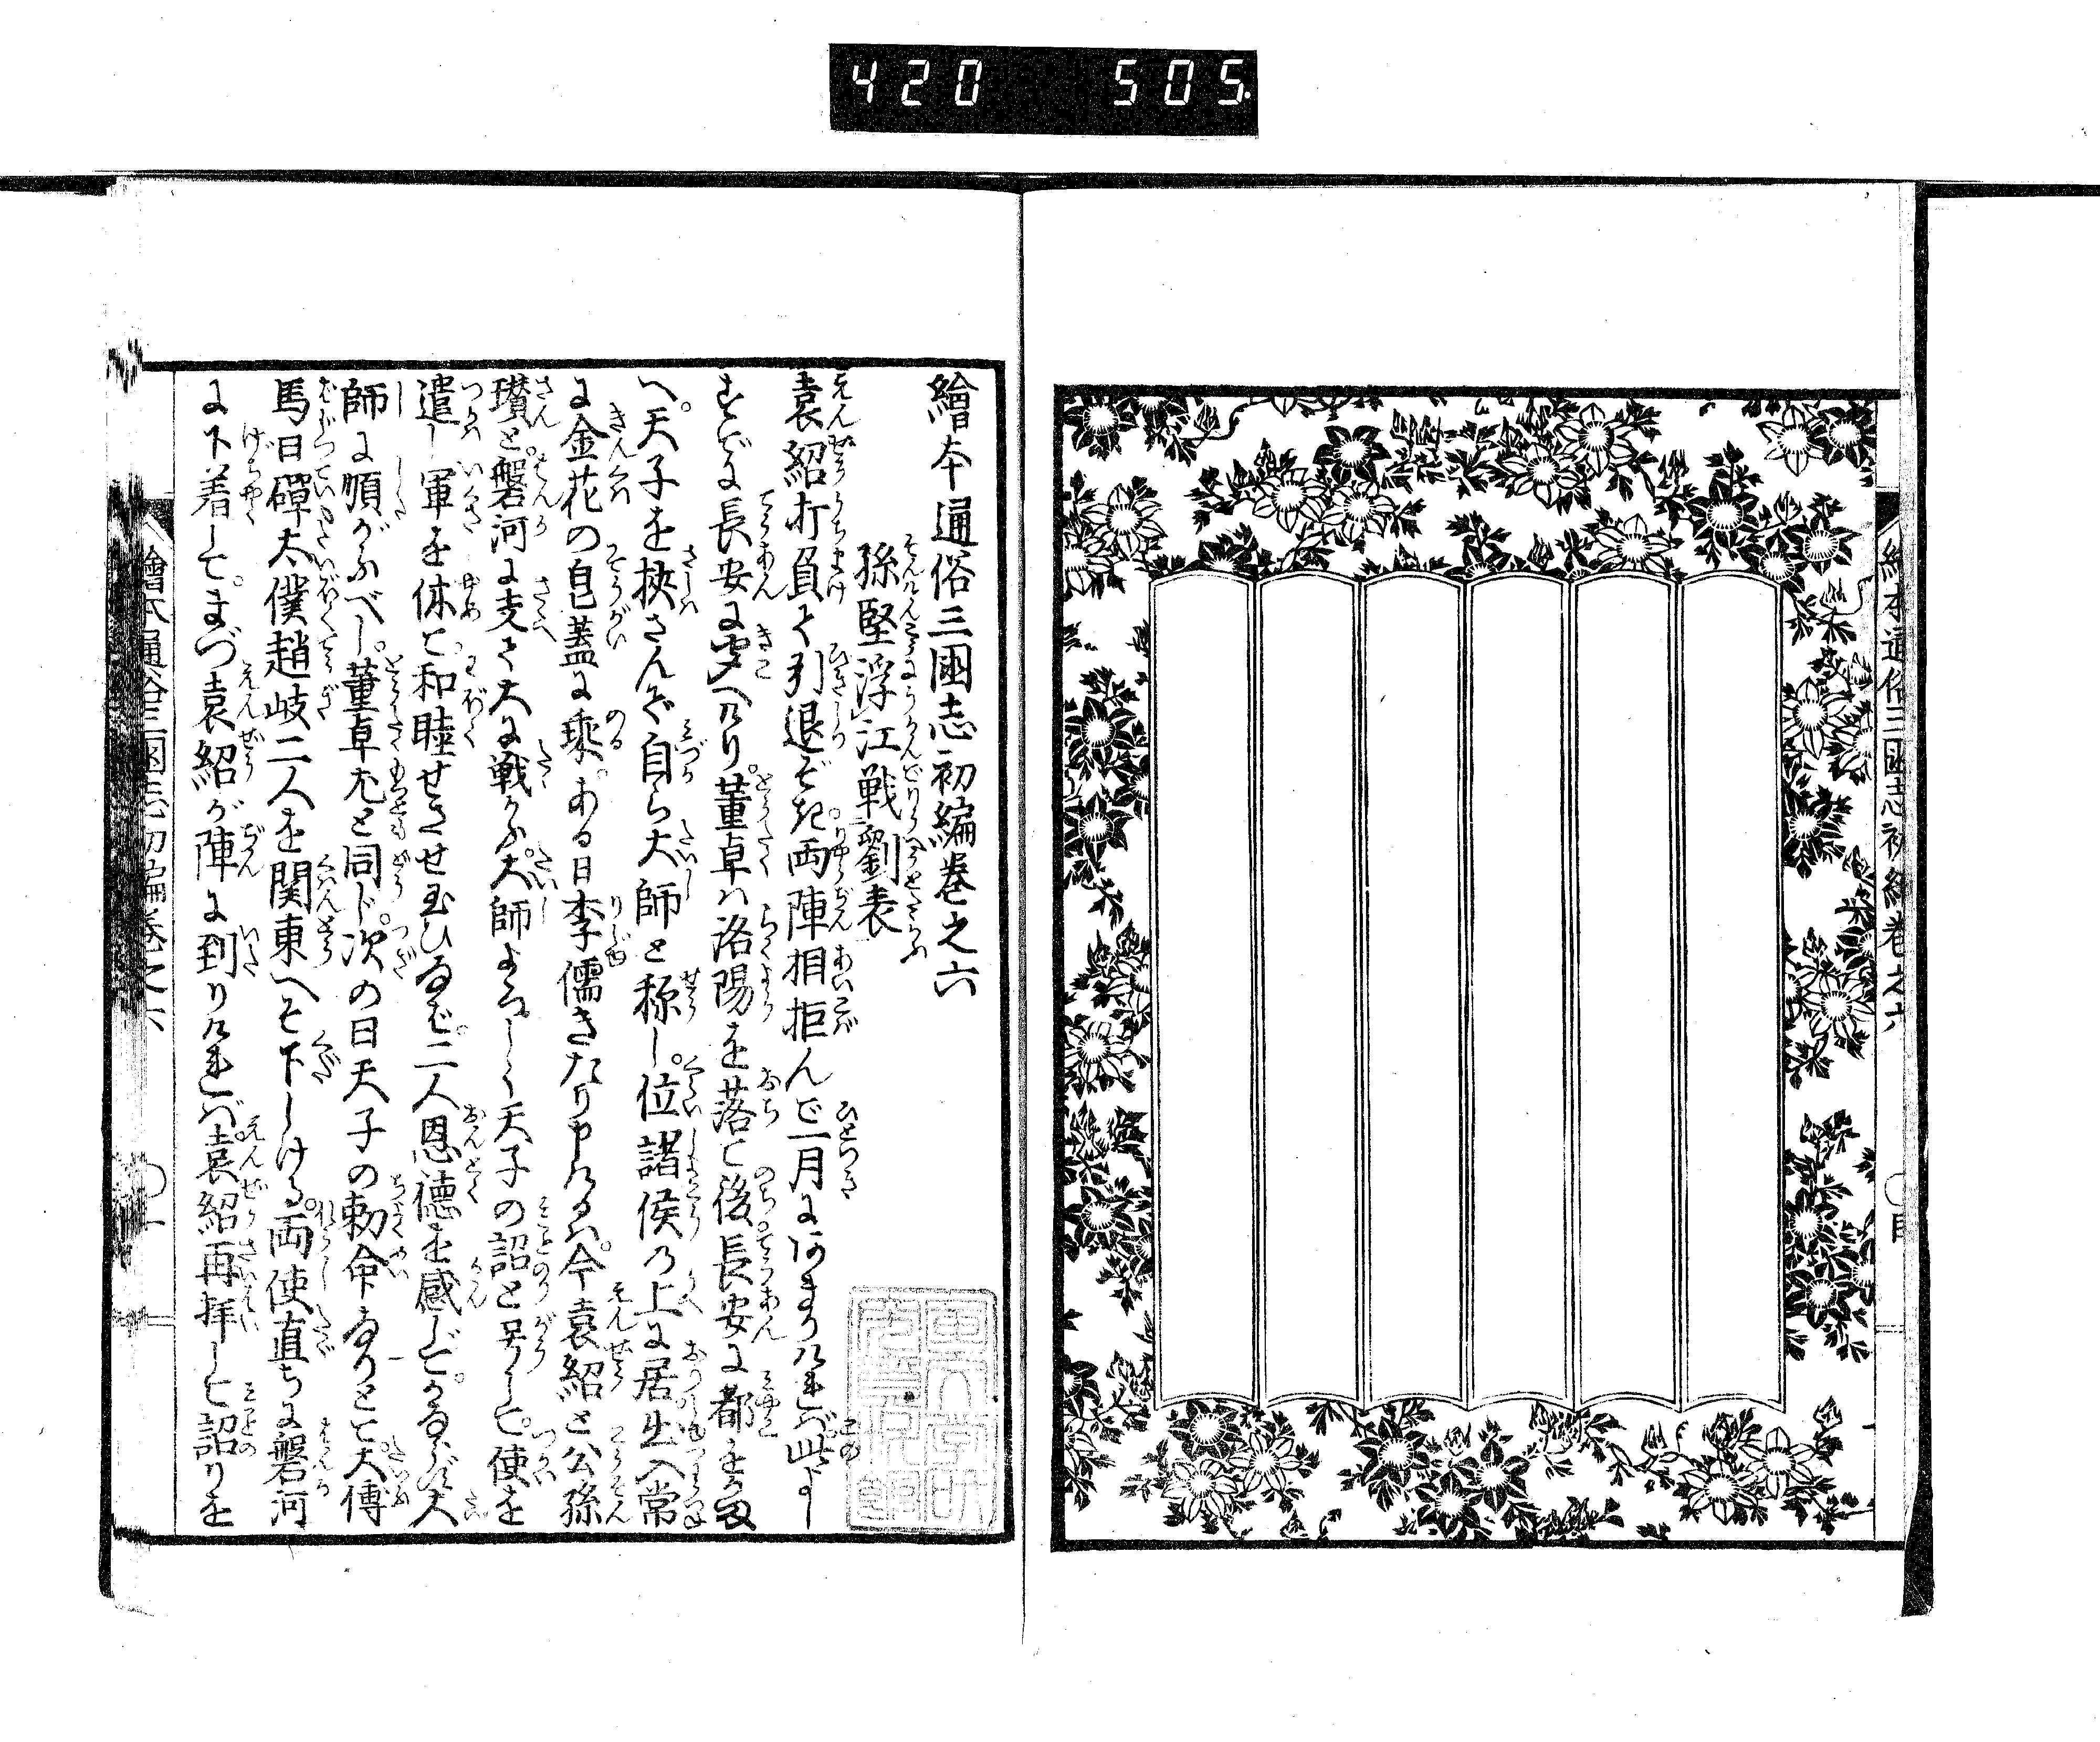 420 505.
繪本通俗三國志初編巻之六
目
繪本通俗三國志初編巻之六
孫堅浮江戦劉表
袁紹打負て引退ぞき両陣相拒んで一月にあまりければ此よし
すでに長安に聞へけり。董卓ハ洛陽を落て後長安に都をかま
へ。天子を挾さんで自ら大師と称し。位諸侯の上に居出入常
に金花の皀蓋に乗。ある日李儒きたり申けるハ。今袁紹と公孫
瓚と。磐河に支て大に戦かふ。太師よろしく天子の詔と号して。使を
遣し軍を休て。和睦せさせ玉ひなば。二人恩徳を感じて。かならず太
師に順がふべし。董卓尤と同じ。次の日天子の勅命なりとて。太傅
馬日磾太僕趙岐二人を関東へぞ下しける。両使直ちに磐河
に下着して。まづ袁紹が陣に到りければ。袁紹再拝して詔りを
繪本通俗三國志初編巻之六
〇一